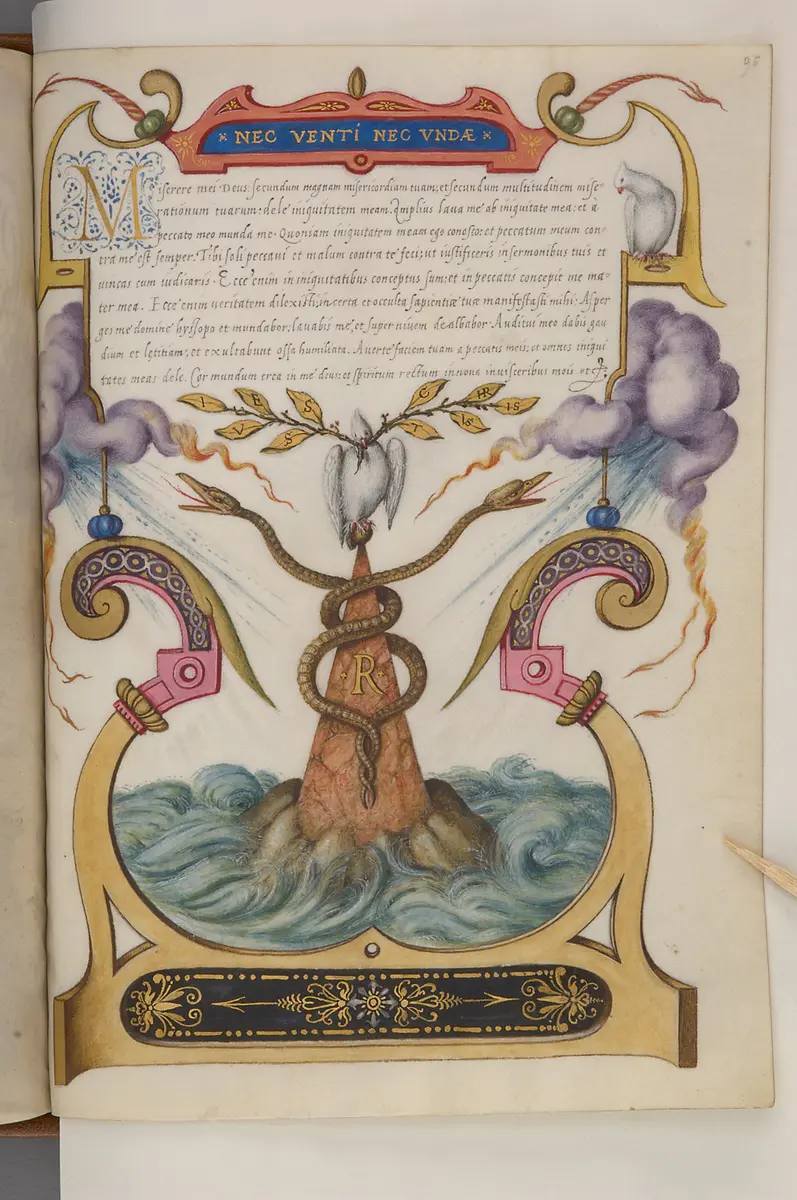 95
NEC VENTI NEC VNDÆ
Miserere mei Deus: secundum magnam misericordiam tuam: et secundum multitudinem mise-
rationum tuarum: dele iniquitatem meam. Amplius laua me ab iniquitate mea: et à
peccato meo munda me. Quoniam iniquitatem meam ego conosco: et peccatum meum con-
tra me est semper. Tibi soli peccaui et malum contra te feci; ut iustificeris in sermonibus tuis et
uincas cum iudicaris. Ecce enim in iniquitatibus conceptus sum: et in peccatis concepit me ma-
ter mea. Ecce enim ueritatem dilexisti; incerta et occulta sapientiæ tuæ manifestasti mihi: Asper
ges me domine hyssopo et mundabor: lauabis me, et super niuem dealbabor. Auditui meo dabis gau
dium et lętitiam, et exultabunt ossa humiliata. Auerte faciem tuam a peccatis meis: et omnes iniqui
tates meas dele. Cor mundum crea in me deus: et spiritum rectum innoua in uisceribus meis et c̃.
I ES S C HR IS
V S T Is T
R